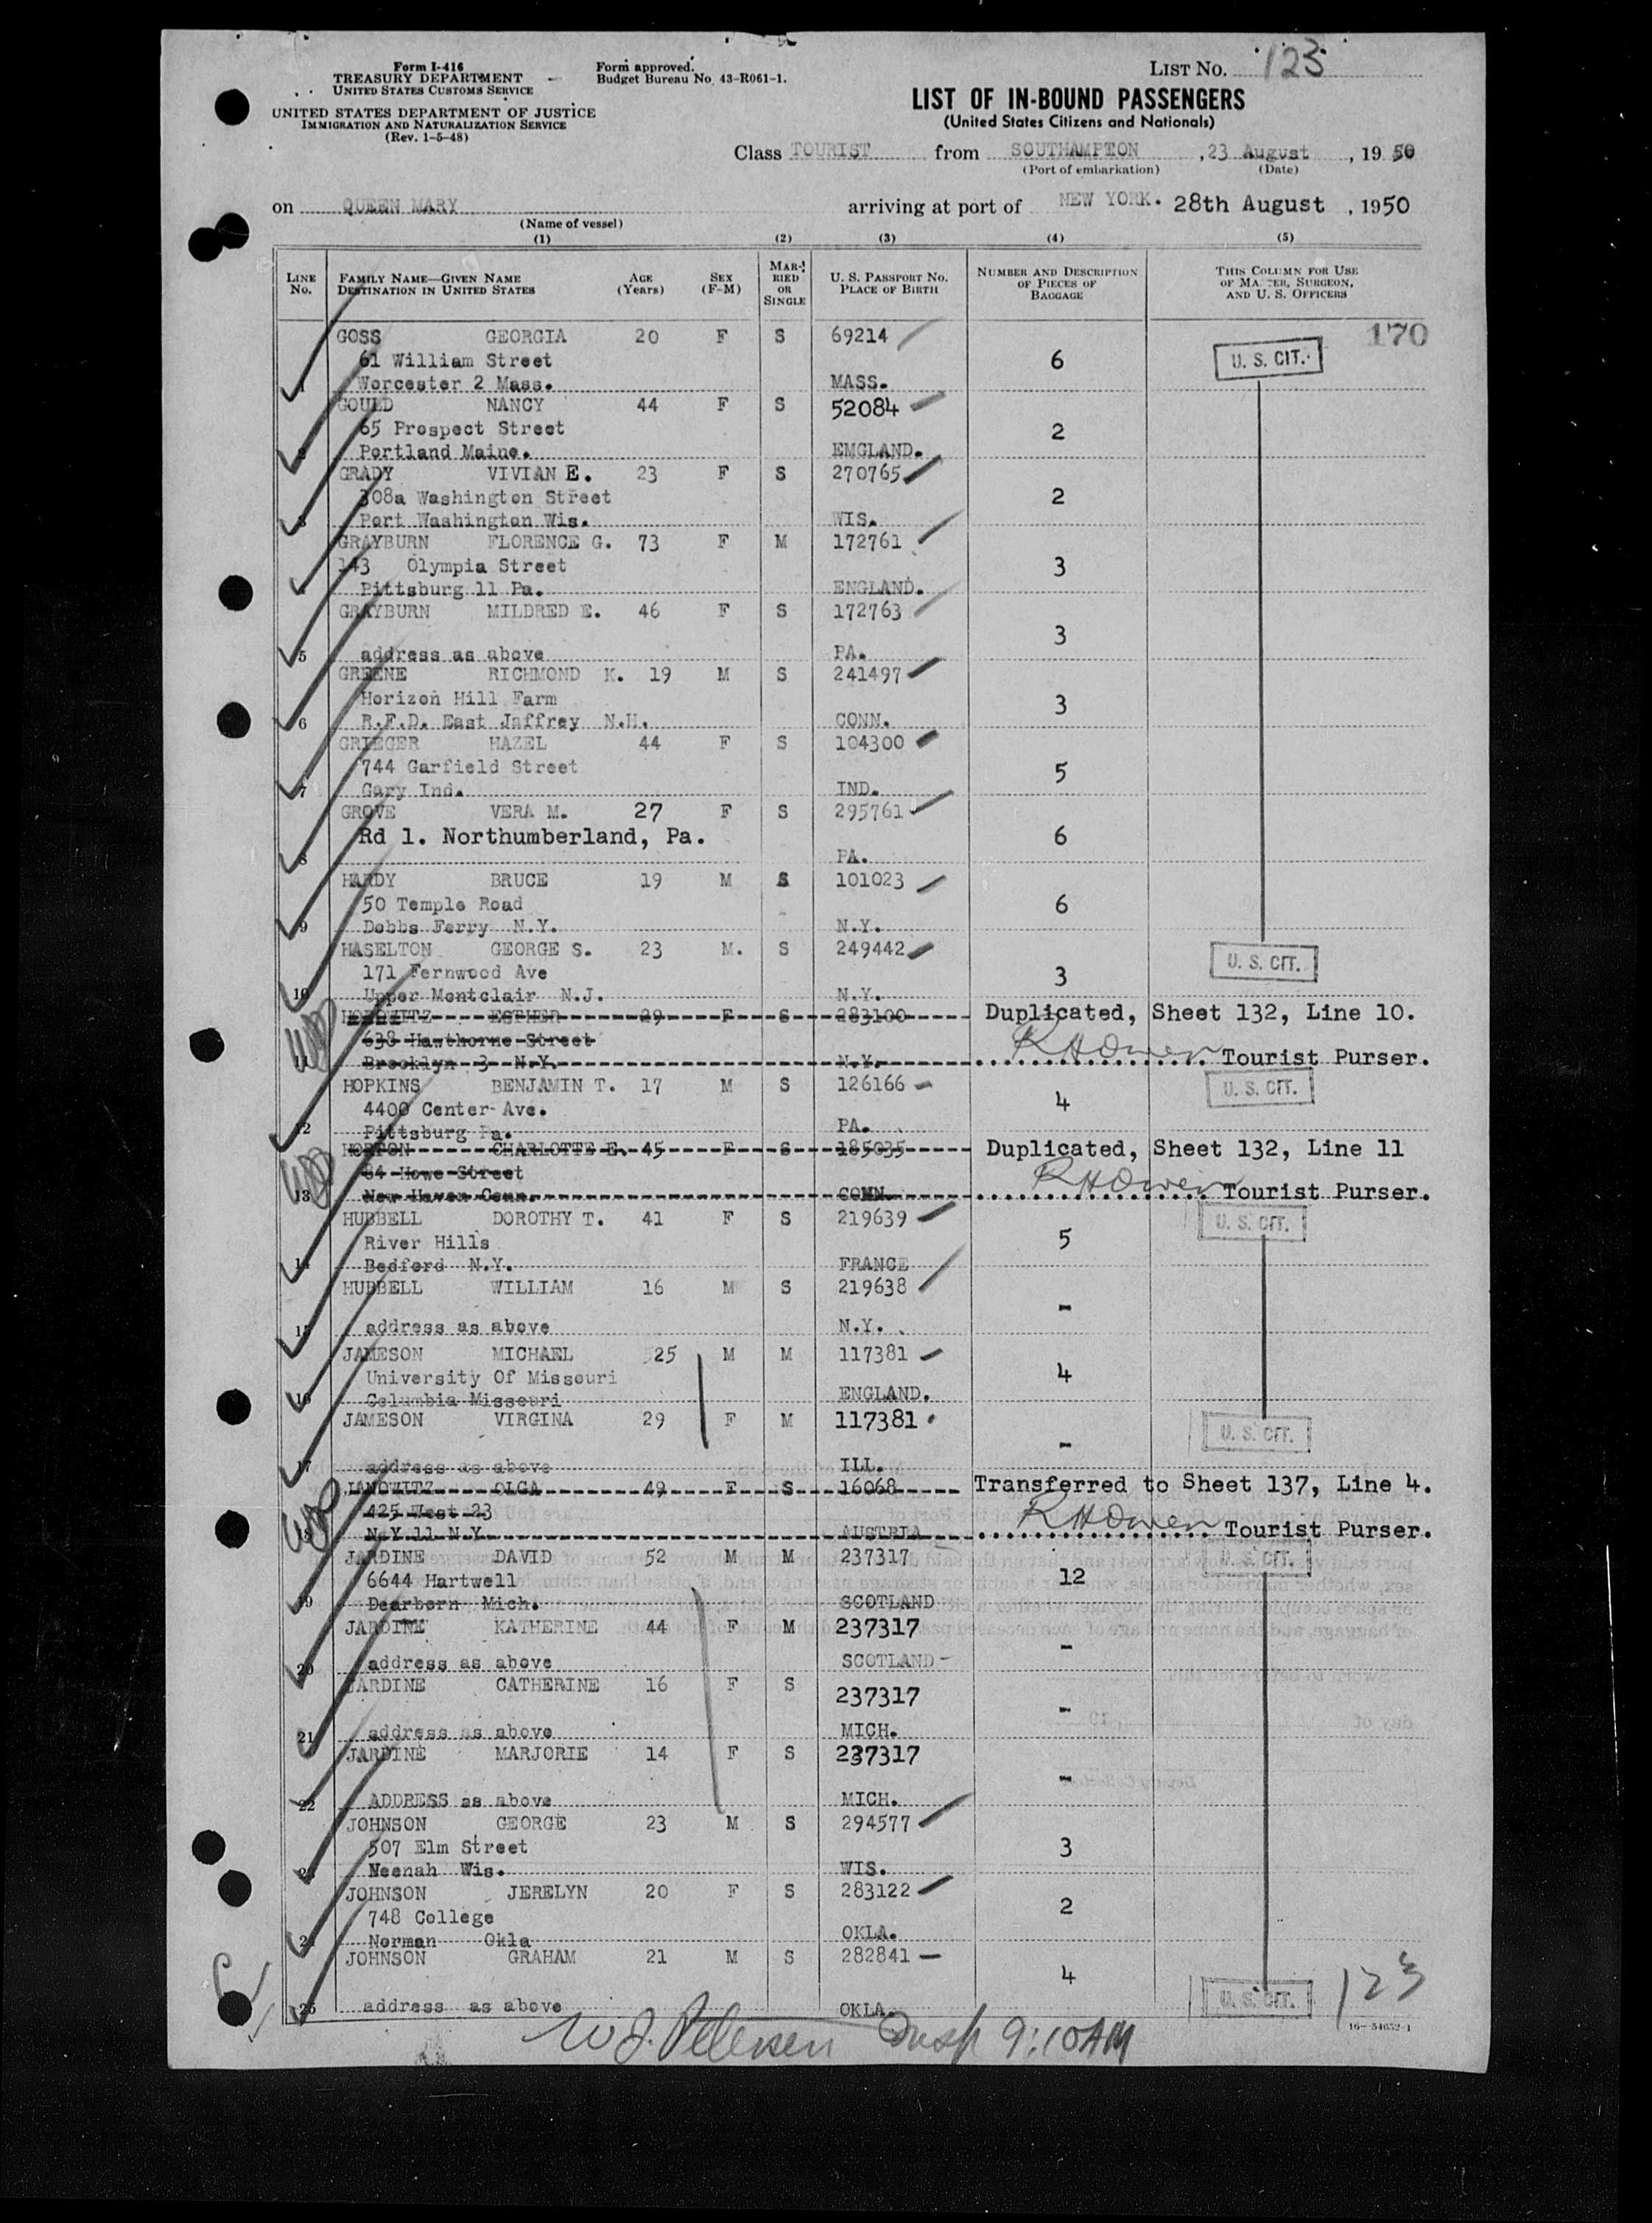 Form I-416
TREASURY DEPARTMENT
UNITED STATES CUSTOMS SERVICE
UNITED STATES DEPARTMENT OF JUSTICE
IMMIGRATION AND NATURALIZATION SERVICE
(Rev. 1-5-48)
Form approved.
Budget Bureau No. 43-R061-1.
LIST No. 123
LIST OF IN-BOUND PASSENGERS
(United States Citizens and Nationals)
Class TOURIST from SOUTHAMPTON , 23 August , 19 50
(Port of embarkation) (Date)
on QUEEN MARY arriving at port of NEW YORK. 28th August , 1950
(Name of vessel)
(1) (2) (3) (4) (5)
LINE No. FAMILY NAME—GIVEN NAME DESTINATION IN UNITED STATES AGE (Years) SEX (F-M) MARRIED OR SINGLE U. S. PASSPORT NO. PLACE OF BIRTH NUMBER AND DESCRIPTION OF PIECES OF BAGGAGE THIS COLUMN FOR USE OF MASTER, SURGEON, AND U. S. OFFICERS
170
GOSS GEORGIA 20 F S 69214
61 William Street 6 U. S. CIT.
1 Worcester 2 Mass. MASS.
GOULD NANCY 44 F S 52084
65 Prospect Street 2
2 Portland Maine. EMGLAND.
GRADY VIVIAN E. 23 F S 270765
308a Washington Street 2
3 Port Washington Wis. WIS.
GRAYBURN FLORENCE G. 73 F M 172761
143 Olympia Street 3
4 Pittsburg 11 Pa. ENGLAND.
GRAYBURN MILDRED E. 46 F S 172763
3
5 address as above PA.
GREENE RICHMOND K. 19 M S 241497
Horizon Hill Farm 3
6 R.F.D. East Jaffrey N.H. CONN.
GRIEGER HAZEL 44 F S 104300
744 Garfield Street 5
7 Gary Ind. IND.
GROVE VERA M. 27 F S 295761
Rd 1. Northumberland, Pa. 6
8 PA.
HARDY BRUCE 19 M S 101023
50 Temple Road 6
9 Dobbs Ferry N.Y. N.Y.
HASELTON GEORGE S. 23 M. S 249442
171 Fernwood Ave 3 U. S. CIT.
10 Upper Montclair N.J. N.Y.
HOROWITZ ESTHER 29 F S 283100 Duplicated, Sheet 132, Line 10.
638 Hawthorne Street
11 Brooklyn 3 N.Y. N.Y. RHOwen Tourist Purser.
HOPKINS BENJAMIN T. 17 M S 126166 U. S. CIT.
4400 Center Ave. 4
12 Pittsburg Pa. PA.
HORTON CHARLOTTE E. 45 F S 185035 Duplicated, Sheet 132, Line 11
84 Howe Street
13 New Haven Conn. CONN. RHOwen Tourist Purser.
HUBBELL DOROTHY T. 41 F S 219639 U. S. CIT.
River Hills 5
14 Bedford N.Y. FRANCE
HUBBELL WILLIAM 16 M S 219638
-
15 address as above N.Y.
JAMESON MICHAEL 25 M M 117381
University Of Missouri 4
16 Columbia Missouri ENGLAND.
JAMESON VIRGINA 29 F M 117381 U. S. CIT.
-
17 address as above ILL.
JANOWITZ OLGA 49 F S 16068 Transferred to Sheet 137, Line 4.
425 West 23
18 N.Y. 11 N.Y. AUSTRIA RHOwen Tourist Purser.
JARDINE DAVID 52 M M 237317 U. S. CIT.
6644 Hartwell 12
19 Dearborn Mich. SCOTLAND
JARDINE KATHERINE 44 F M 237317
-
20 address as above SCOTLAND
JARDINE CATHERINE 16 F S 237317
-
21 address as above MICH.
JARDINE MARJORIE 14 F S 237317
-
22 ADDRESS as above MICH.
JOHNSON GEORGE 23 M S 294577
507 Elm Street 3
23 Neenah Wis. WIS.
JOHNSON JERELYN 20 F S 283122
748 College 2
24 Norman Okla OKLA.
JOHNSON GRAHAM 21 M S 282841
4 123
25 address as above OKLA. U. S. CIT.
16-54652-1
W J. Petersen Insp 9:10AM